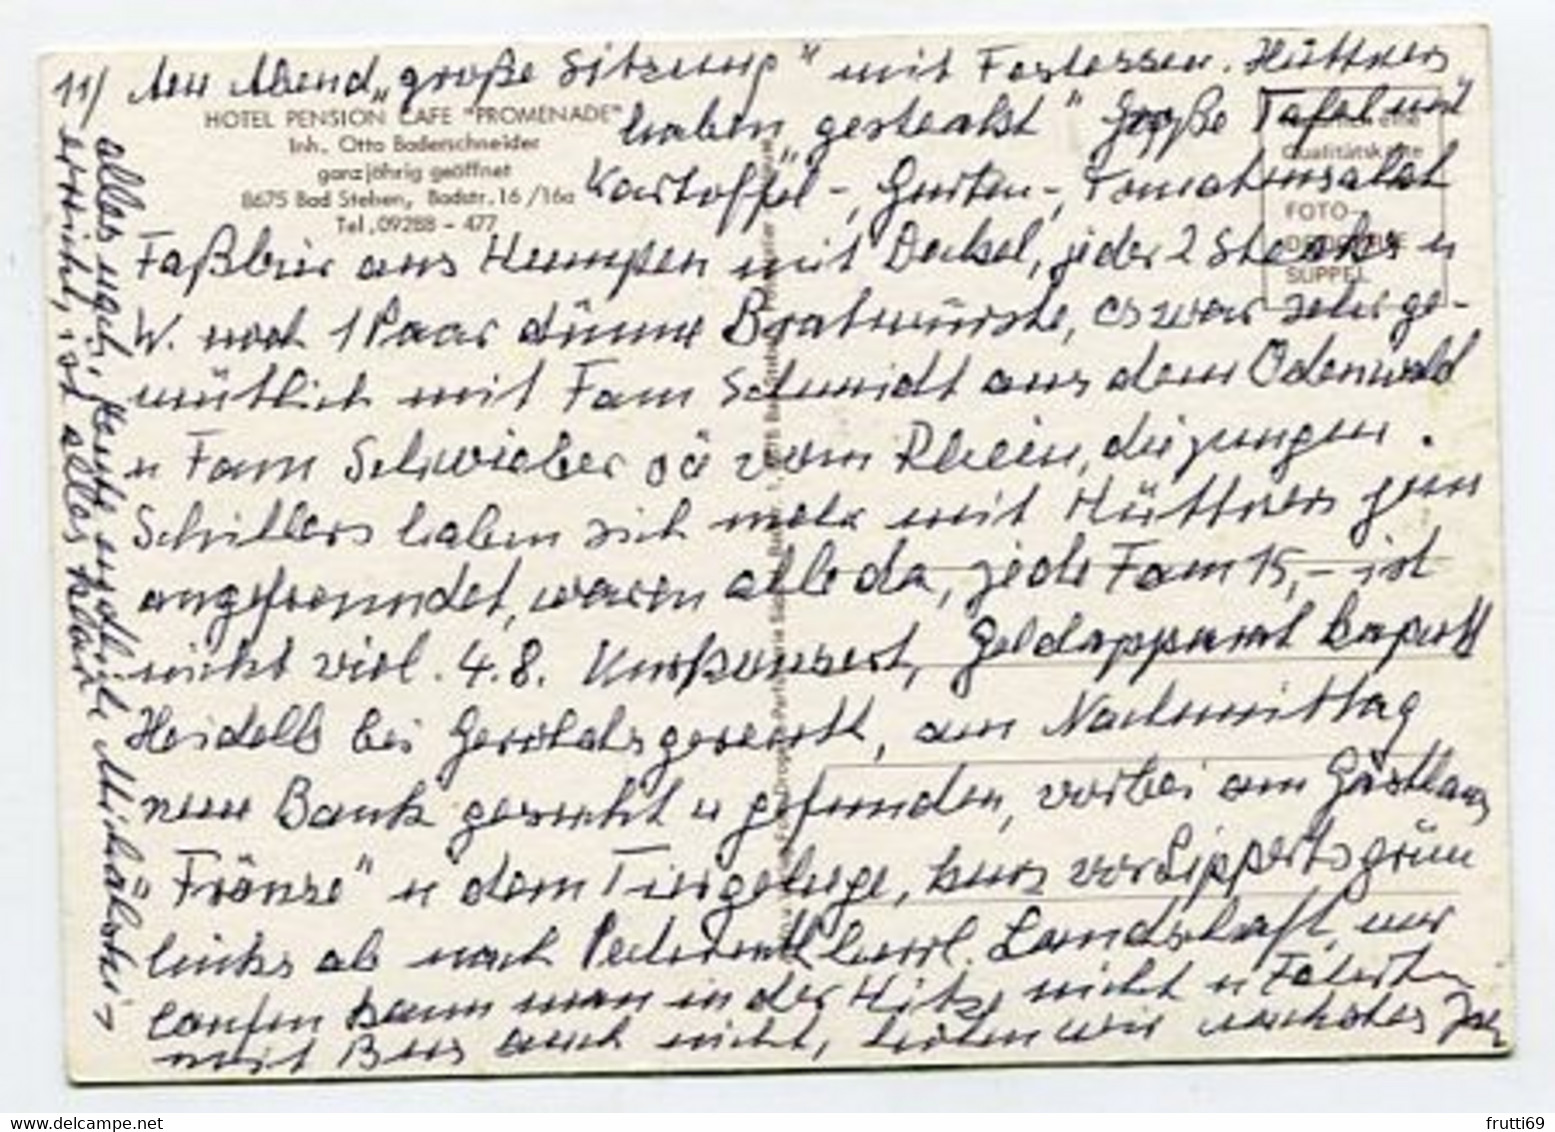 11/ Am Abend „große Sitzung" mit Festessen. Hüttners
HOTEL PENSION CAFE "PROMENADE"
Inh. Otto Baderschneider
ganzjährig geöffnet
8675 Bad Steben, Badstr. 16/16a
Tel. 09288 - 477
haben „gesteakst" große Tafel mit
Kartoffel-, Gurken-, Tomatensalat
Qualitätskarte
FOTO-
DROGERIE
SÜPPEL
Faßbier aus Humpen mit Deckel, jeder 2 Steaks u
W. noch 1 Paar dünne Bratwürste, es war sehr ge-
mütlich mit Fam Schmidt aus dem Odenwald
u Fam Schwieber vom Rhein, die jungen
Schillers haben sich mehr mit Hüttners jun
angefreundet, waren alle da, jede Fam 15,- ist
nicht viel. 4.8. Kurkonzert, Geldapparat kaputt
bei Geroldsgereuth, am Nachmittag
neue Bank gesucht u gefunden, vorbei am Gasthaus
"Fränze" u dem Tiergehege, kurz vor Lippertsgrün
links ab nach herrl. Landschaft, nur
laufen kann man in der Hitze nicht u Fahrten
mit Bus auch nicht, holen wir nächstes Jahr
alles nach, heute endlich
erreicht, ist alles klar
frutti69